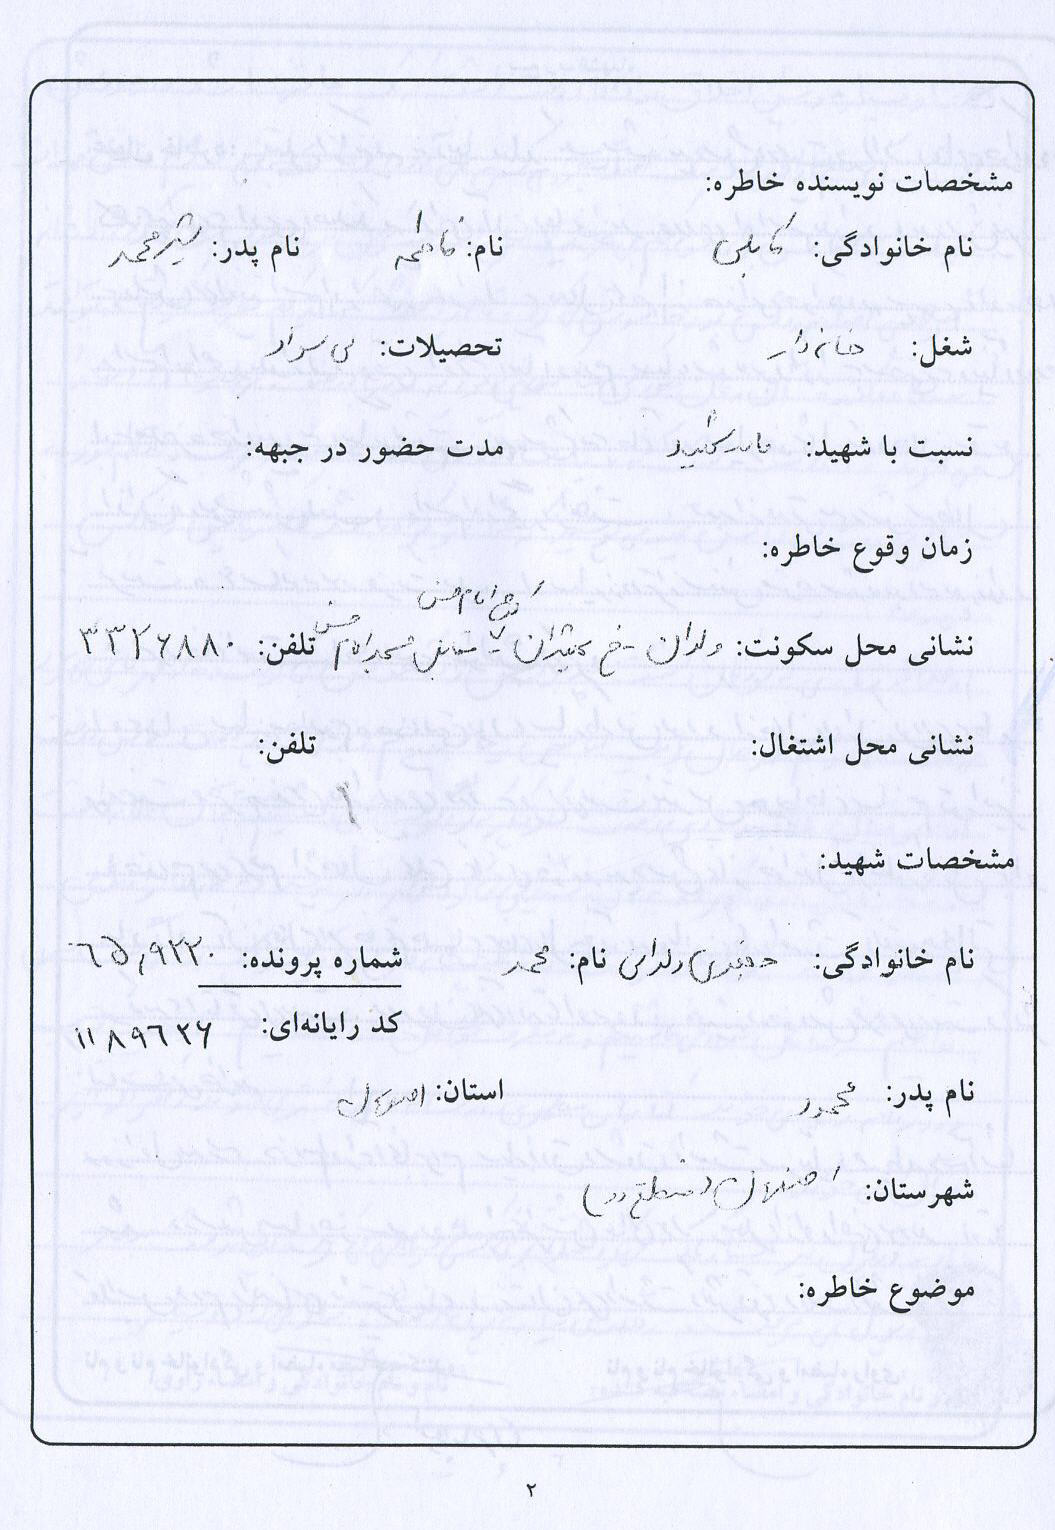 مشخصات نویسنده خاطره:
نام خانوادگی: کابلی نام: فاطمه نام پدر: شیرمحمد
شغل: خانه دار تحصیلات: بی سواد
نسبت با شهید: مادر شهید مدت حضور در جبهه:
زمان وقوع خاطره:
کوچه امام حسن
نشانی محل سکونت: ولدان - خ - مقابل مسجد امام حسن تلفن: ۳۳۲۶۸۸۰
نشانی محل اشتغال: تلفن:
مشخصات شهید:
نام خانوادگی: ولدانی نام: محمد شماره پرونده:
کد رایانه‌ای: ۱۱۸۹۶۲۶
نام پدر: محمود استان: اصفهان
شهرستان: اصفهان (منطقه دو)
موضوع خاطره:
۲